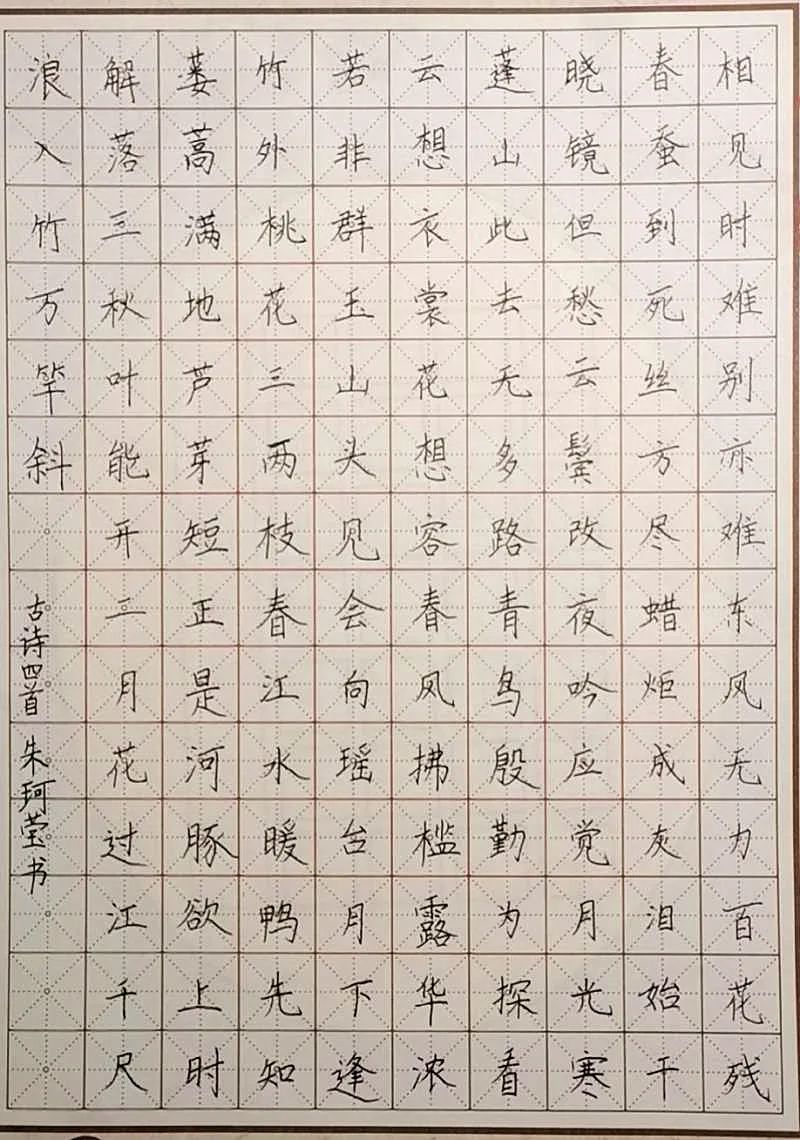 相见时难别亦难东风无力百花残
春蚕到死丝方尽蜡炬成灰泪始干
晓镜但愁云鬓改夜吟应觉月光寒
蓬山此去无多路青鸟殷勤为探看
云想衣裳花想容春风拂槛露华浓
若非群玉山头见会向瑶台月下逢
竹外桃花三两枝春江水暖鸭先知
蒌蒿满地芦芽短正是河豚欲上时
解落三秋叶能开二月花过江千尺
浪入竹万竿斜。
古诗四首 朱珂莹书